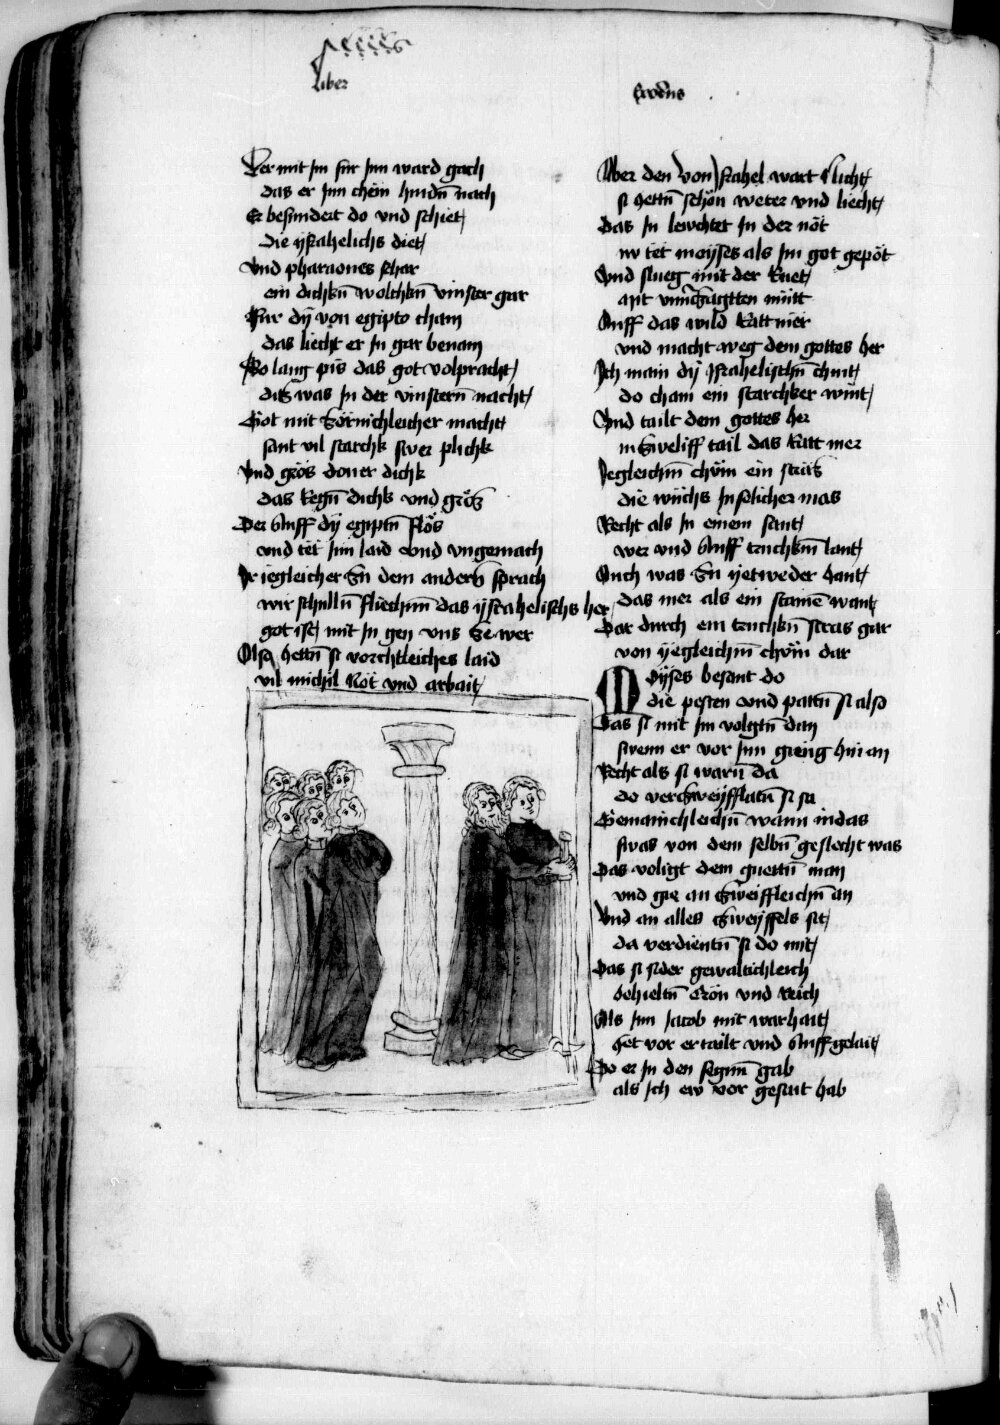 liber
Exodus
Der mit Im für Inn ward gach
das er Inn chem hindn̄ nach
Er besundert do vnd schiet
die yſrahelichs diet
Vnd pharaones schar
ein dickn̄ wolckn̄ vinster gar
Fur dy von egipto cham
das liecht er In gar benam
So lang pis das got volpracht
ditz was In der vinstern̄ nacht
Got mit zörnichleicher macht
sant vil starchk swer plichk
Vnd grös doner dichk
das Regn̄ dichk vnd gröz
Der lufft dy egiptn̄ flös
vnd tet Inn laid vnd vngemach
Ir iegleicher zu dem andern̄ sprach
wir schulln̄ fliechnn̄ das yſrahelischs her
got ist mit In gen vns ze wer
Also hettn̄ si vorchtleiches laid
vil michil Nöt vnd arbait
Aber den von Israhel wart licht
si hettn̄ schön weter vnd liecht
Das In lewchtet In der nöt
nv tet moyses als Im got gepöt
Vnd slueg mit der Ruet
mit vnuerzagtten müt
Auff das wild Ratt mer
vnd macht weg dem gottes her
Ich main dy Israhelischn̄ chint
do cham ein starchker wint
Vnd tailt dem gottes her
in zweliff tail das Ratt mer
Iegleichm̄ chöm ein straz
die wüchs In solicher mas
Recht als In einem sant
wer vnd lufft truchkm̄ lant
Auch was zu yetweder hant
das mer als ein stainē want
Dar durch ein truchkn̄ stras gar
von yegleichm̄ chöm dar
Moyses besant do
die pesten vnd pattn̄ si also
Das si mit Im volgtn̄ dan
swenn er vor Inn gieng hin an
Recht als si warn̄ da
do verzweyfflatn̄ si sa
Gemainchleichn̄ wann iudas
swas von dem selbn̄ geslecht was
Das voligt dem guettn̄ man
vnd gie an zweiffleichn̄ an
Vnd an alles zweyffels sit
da verdientn̄ si do mit
Das si sider gewaltichleich
behieltn̄ Crön vnd Reich
Als Inn Jacob mit warhait
het vor ertailt vnd auffgelait
Do er In den segnn̄ gab
als Ich ew vor gesait hab